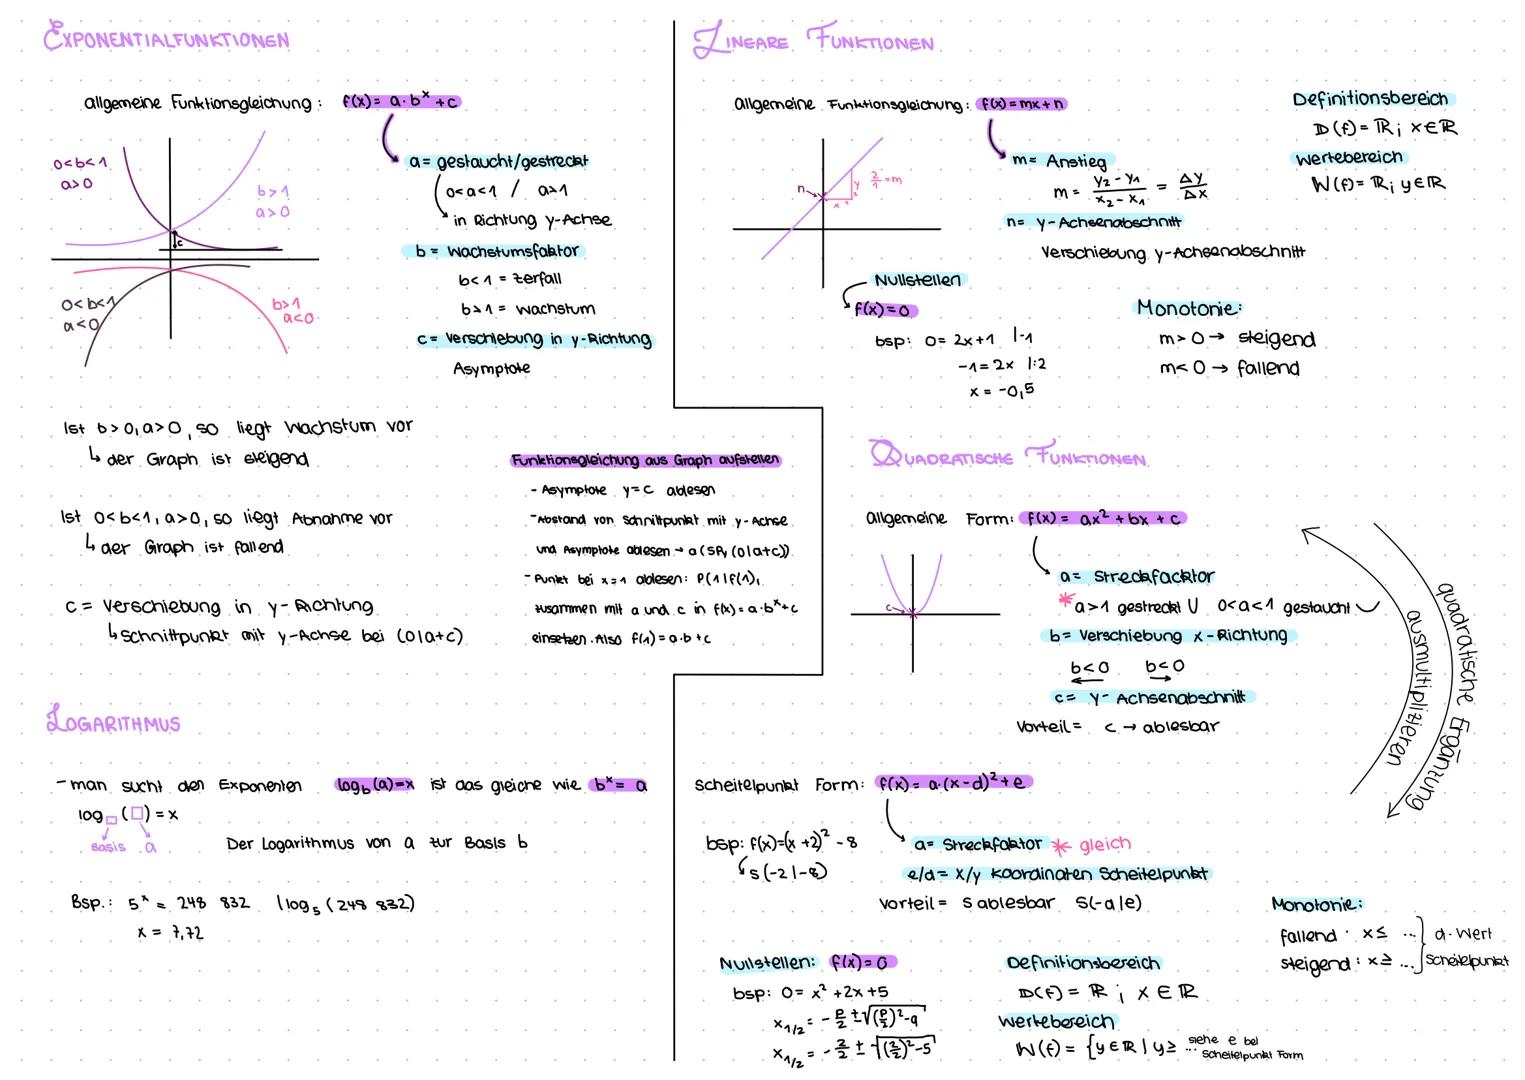 EXPONENTIALFUNKTIONEN
allgemeine Funktionsgleichung: f(x) = a·bˣ + c
0<b<1
a>0
b>1
a>0
c
0<b<1
a<0
b>1
a<0
a = gestaucht/gestreckt
0<a<1 / a>1
in Richtung y-Achse
b = Wachstumsfaktor
b<1 = Zerfall
b>1 = Wachstum
c = Verschiebung in y-Richtung
Asymptote
Ist b>0, a>0, so liegt Wachstum vor
↳ der Graph ist steigend
Ist 0<b<1, a>0, so liegt Abnahme vor
↳ der Graph ist fallend
c = Verschiebung in y-Richtung
↳ Schnittpunkt mit y-Achse bei (0|a+c)
Funktionsgleichung aus Graph aufstellen
- Asymptote y=c ablesen
- Abstand von Schnittpunkt mit y-Achse
und Asymptote ablesen → a (SPy (0|a+c))
- Punkt bei x=1 ablesen: P(1|f(1),
zusammen mit a und c in f(x) = a·bˣ+c
einsetzen. Also f(1) = a·b+c
LOGARITHMUS
- man sucht den Exponenten log_b (a)=x ist das gleiche wie bˣ = a
log□ (□) = x
Basis a
Der Logarithmus von a zur Basis b
Bsp.: 5ˣ = 248 832 | log₅ (248 832)
x = 7,72
LINEARE FUNKTIONEN
allgemeine Funktionsgleichung: f(x) = mx+n
n
y
2
x 1
2/1 = m
m = Anstieg
m = (y₂ - y₁)/(x₂ - x₁) = Δy/Δx
n = y-Achsenabschnitt
Verschiebung y-Achsenabschnitt
Definitionsbereich
D(f) = ℝ; x∈ℝ
Wertebereich
W(f) = ℝ; y∈ℝ
Nullstellen
f(x) = 0
bsp: 0 = 2x+1 |-1
-1 = 2x |:2
x = -0,5
Monotonie:
m>0 → steigend
m<0 → fallend
QUADRATISCHE FUNKTIONEN
allgemeine Form: f(x) = ax² + bx + c
c
a = Streckfacktor
* a>1 gestreckt U 0<a<1 gestaucht
b = Verschiebung x-Richtung
b<0 b<0
c = y-Achsenabschnitt
Vorteil = c → ablesbar
quadratische Ergänzung
ausmultiplizieren
Scheitelpunkt Form: f(x) = a·(x-d)² + e
bsp: f(x)=(x+2)² - 8
S(-2|-8)
a = Streckfaktor * gleich
e/d = x/y Koordinaten Scheitelpunkt
Vorteil = S ablesbar S(-d|e)
Monotonie:
fallend: x≤ ...
steigend: x≥ ...
d-Wert
Scheitelpunkt
Nullstellen: f(x) = 0
bsp: 0 = x² + 2x + 5
x₁/₂ = -p/2 ± √((p/2)²-q)
x₁/₂ = -2/2 ± √((2/2)²-5)
Definitionsbereich
D(f) = ℝ; x∈ℝ
Wertebereich
W(f) = {y∈ℝ | y≥ ... siehe e bei
Scheitelpunkt Form